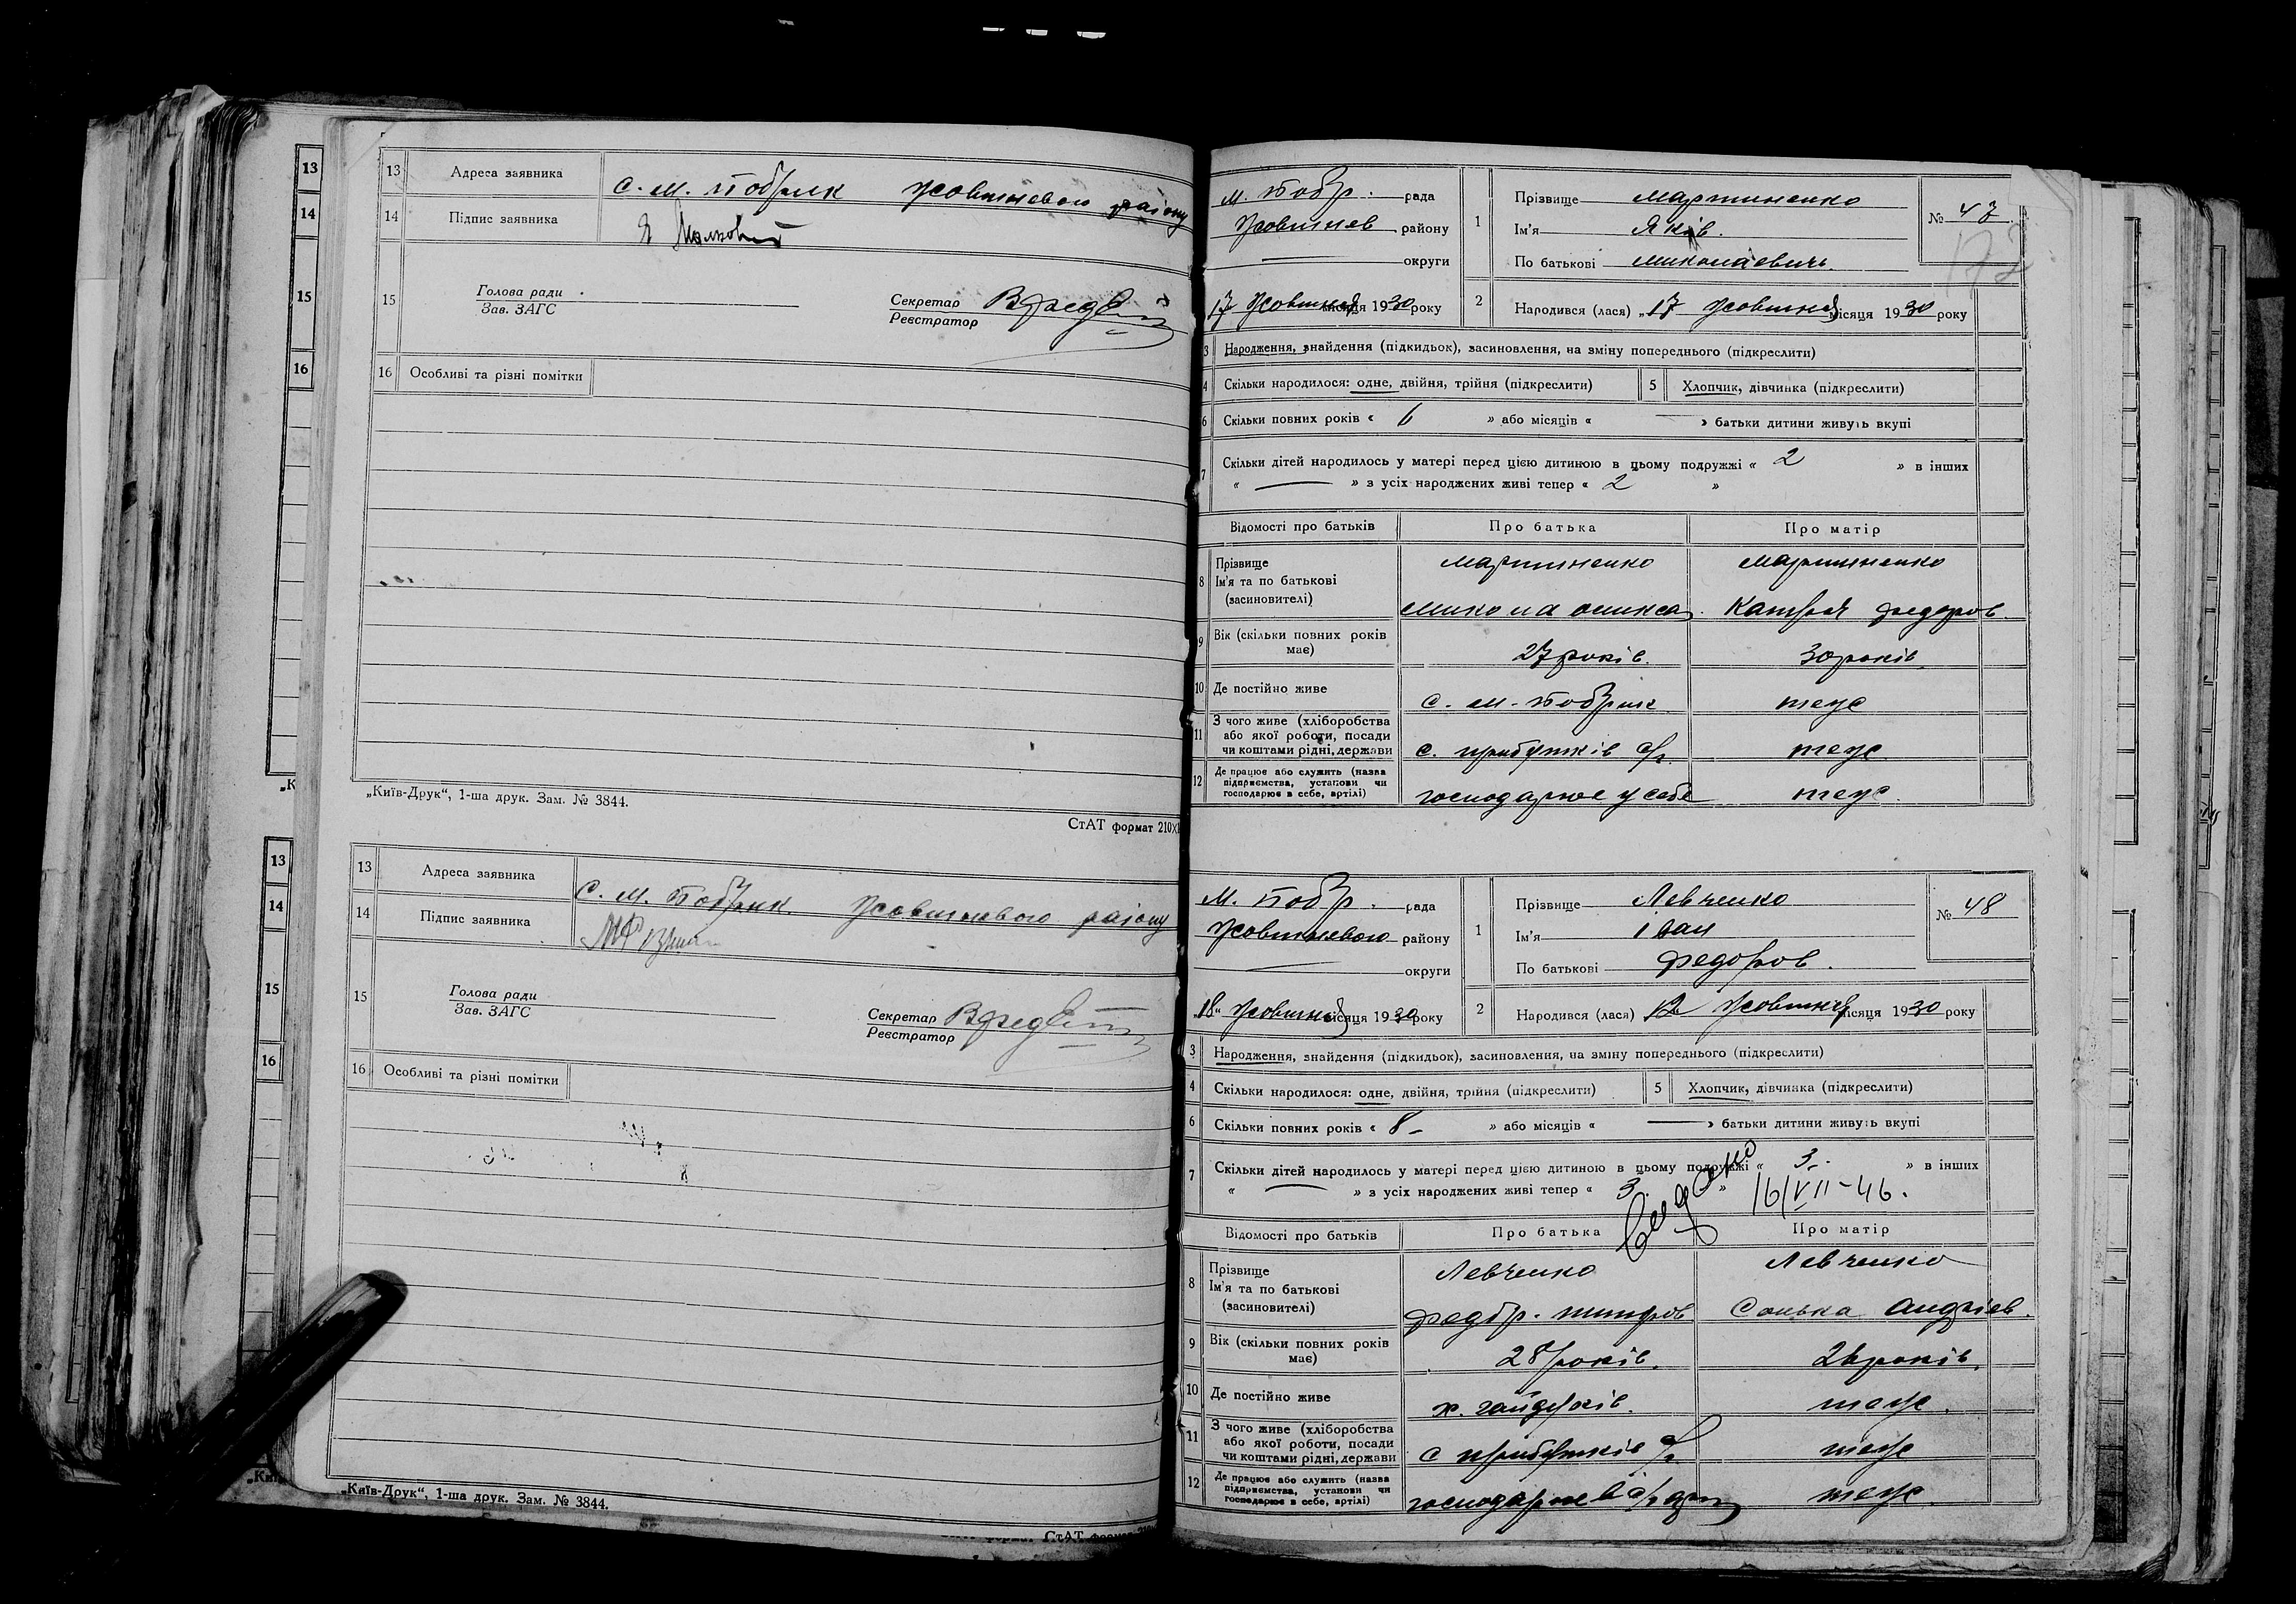 13 Адреса заявника с. м. Бобрик Жовтневого району
14 Підпис заявника
15 Голова ради
Зав. ЗАГС
Секретар
Реєстратор
16 Особливі та різні помітки
„Київ-Друк“, 1-ша друк. Зам. № 3844.
СтАТ формат 210×
13 Адреса заявника С. М. Бобрик. Жовтневого району
14 Підпис заявника
15 Голова ради
Зав. ЗАГС
Секретар
Реєстратор
16 Особливі та різні помітки
„Київ-Друк“, 1-ша друк. Зам. № 3844.
м. Бобр. рада
Жовтнев району
округи
17 Жовтня місяця 1930 року
1 Прізвище Мартиненко
Ім'я Яків.
По батькові Миколаевичь.
№ 47
172
2 Народився (лася) „17 Жовтня місяця 1930 року
3 Народження, знайдення (підкидьок), засиновлення, на зміну попереднього (підкреслити)
4 Скільки народилося: одне, двійня, трійня (підкреслити) 5 Хлопчик, дівчинка (підкреслити)
6 Скільки повних років « 6 » або місяців « — » батьки дитини живуть вкупі
7 Скільки дітей народилось у матері перед цією дитиною в цьому подружжі « 2 » в інших
« — » з усіх народжених живі тепер « 2 »
Відомості про батьків Про батька Про матір
8 Прізвище Мартиненко Мартиненко
Ім'я та по батькові
(засиновителі) Микола Катря Федоров.
9 Вік (скільки повних років має) 27 років. 30 років
10 Де постійно живе с. м. Бобрик теж
11 З чого живе (хліборобства
або якої роботи, посади
чи коштами рідні, держави с. прибутків с/г. теж.
12 Де працює або служить (назва
підприємства, установи чи
господарює в себе, артілі) господарює у себе теж.
М. Бобр. рада
Жовтневого району
округи
„18“ Жовтня місяця 1930 року
1 Прізвище Левченко
Ім'я іван
По батькові Федоров.
№ 48
2 Народився (лася) 12 Жовтня місяця 1930 року
3 Народження, знайдення (підкидьок), засиновлення, на зміну попереднього (підкреслити)
4 Скільки народилося: одне, двійня, трійня (підкреслити) 5 Хлопчик, дівчинка (підкреслити)
6 Скільки повних років « 8 – » або місяців « — » батьки дитини живуть вкупі
7 Скільки дітей народилось у матері перед цією дитиною в цьому подружжі « 3. » в інших
« — » з усіх народжених живі тепер « 3 »
Видано 16/VII-46.
Відомості про батьків Про батька Про матір
8 Прізвище Левченко Левченко
Ім'я та по батькові
(засиновителі) Федор. Сонька Андріев.
9 Вік (скільки повних років має) 28 років. 26 років.
10 Де постійно живе х. теж.
11 З чого живе (хліборобства
або якої роботи, посади
чи коштами рідні, держави с прибутків с/г теж
12 Де працює або служить (назва
підприємства, установи чи
господарює в себе, артілі) господарює в теж